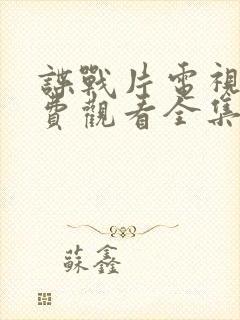 諜戰片電視
費觀看全集
蘇鑫